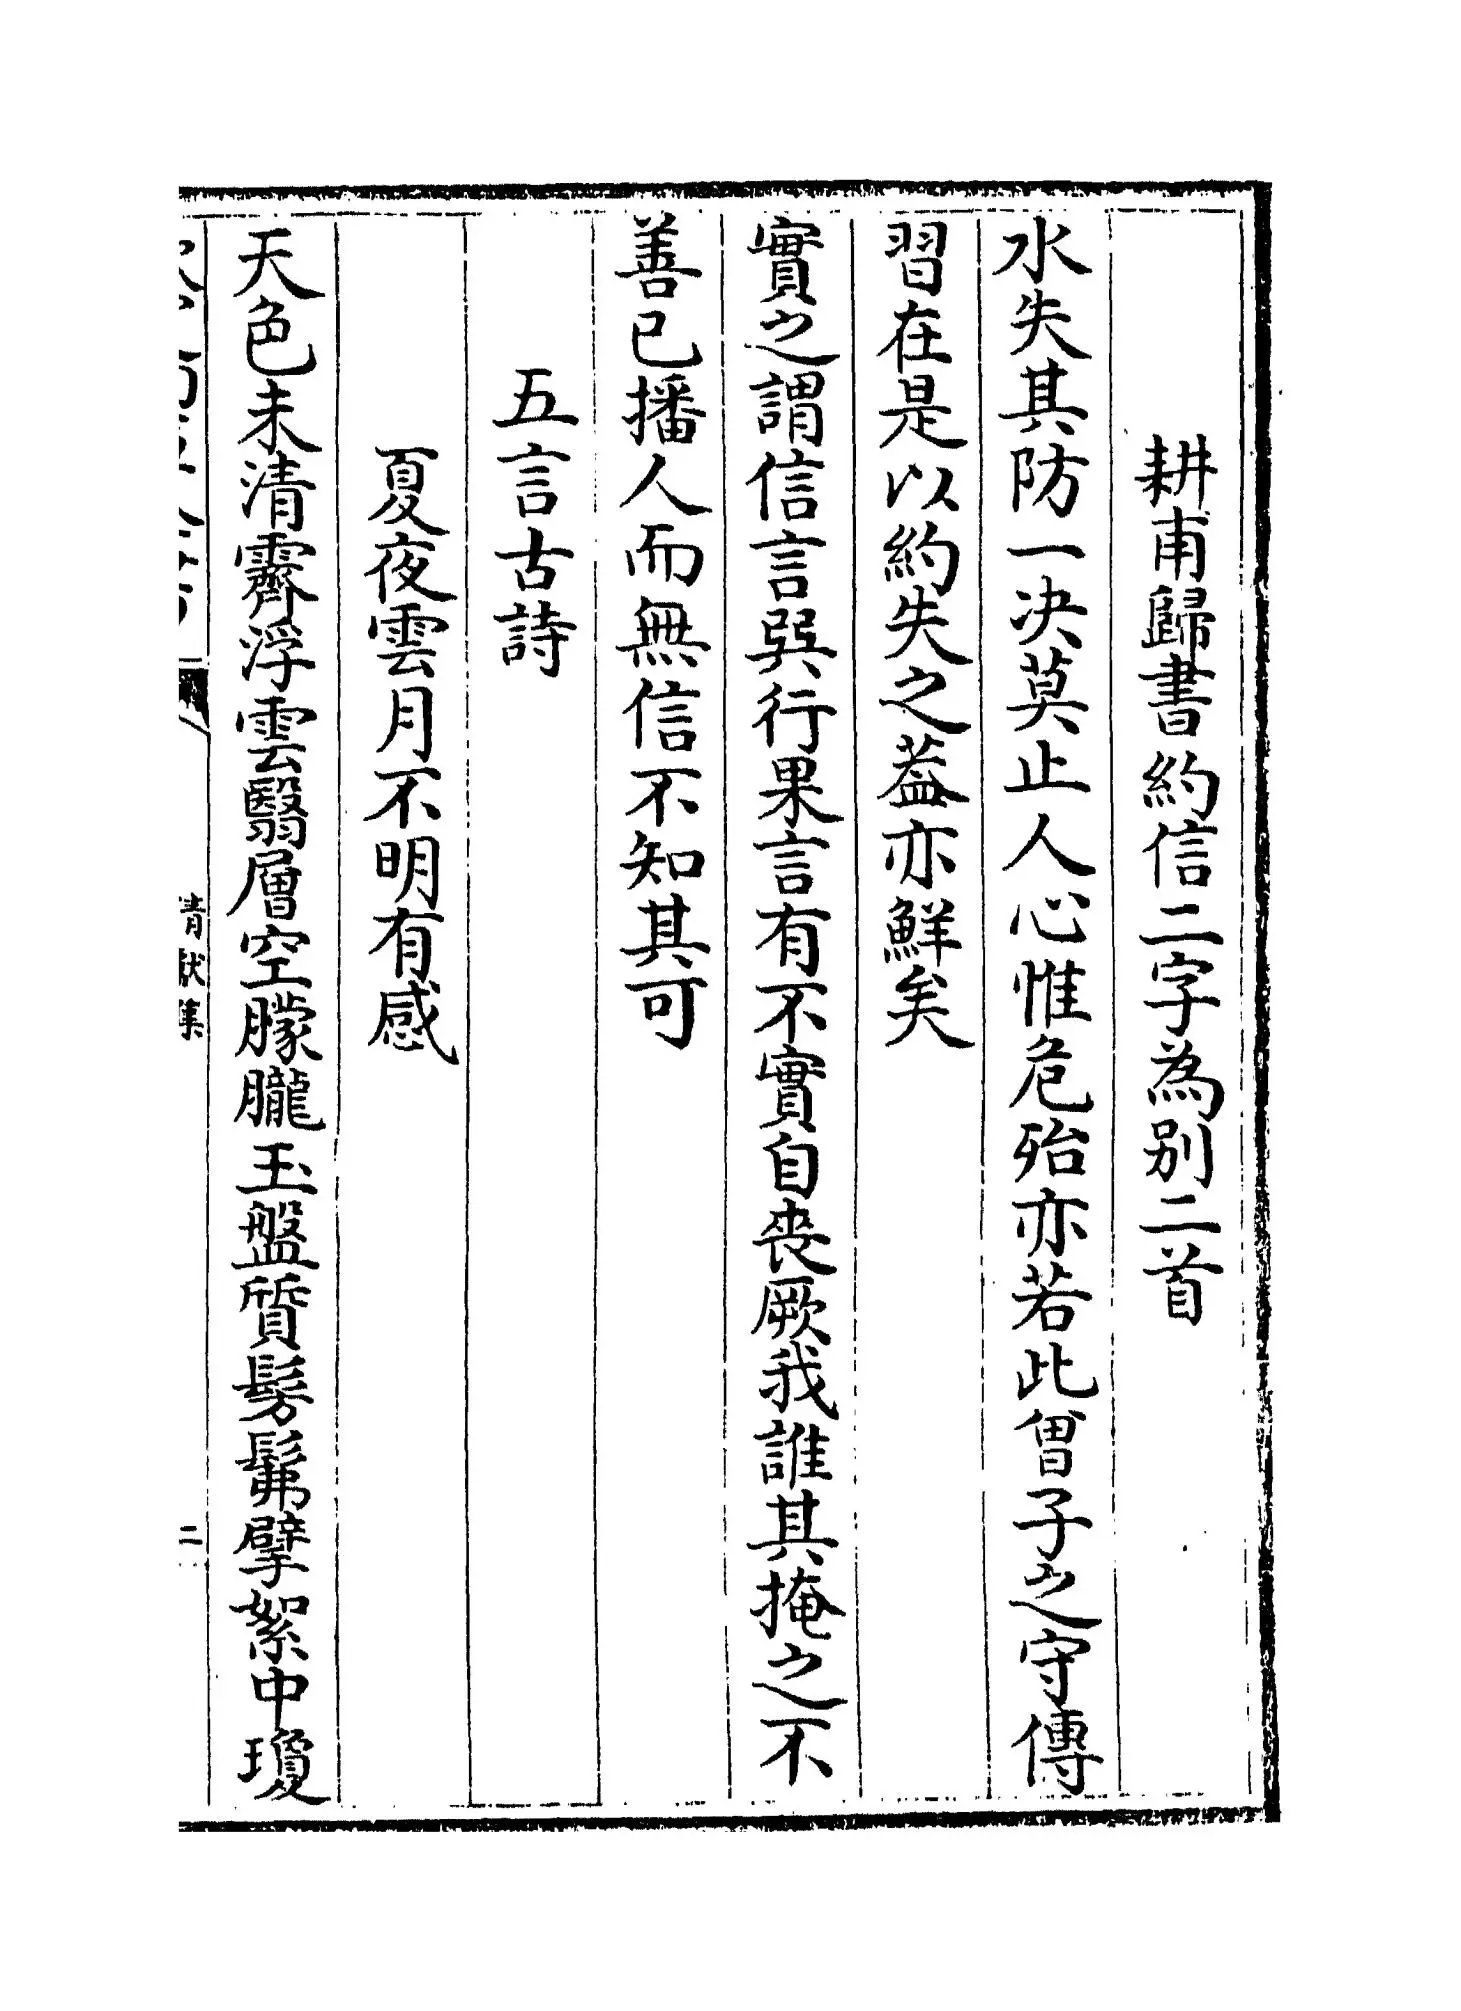 耕甫歸書約信二字為别二首
水失其防一决莫止人心惟危殆亦若此曽子之守傳
習在是以約失之葢亦鮮矣
實之謂信言巽行果言有不實自喪厥我誰其掩之不
善已播人而無信不知其可
五言古詩
夏夜雲月不明有感
天色未清霽浮雲翳層空朦朧玉盤質髣髴擘絮中瓊
清獻集
二